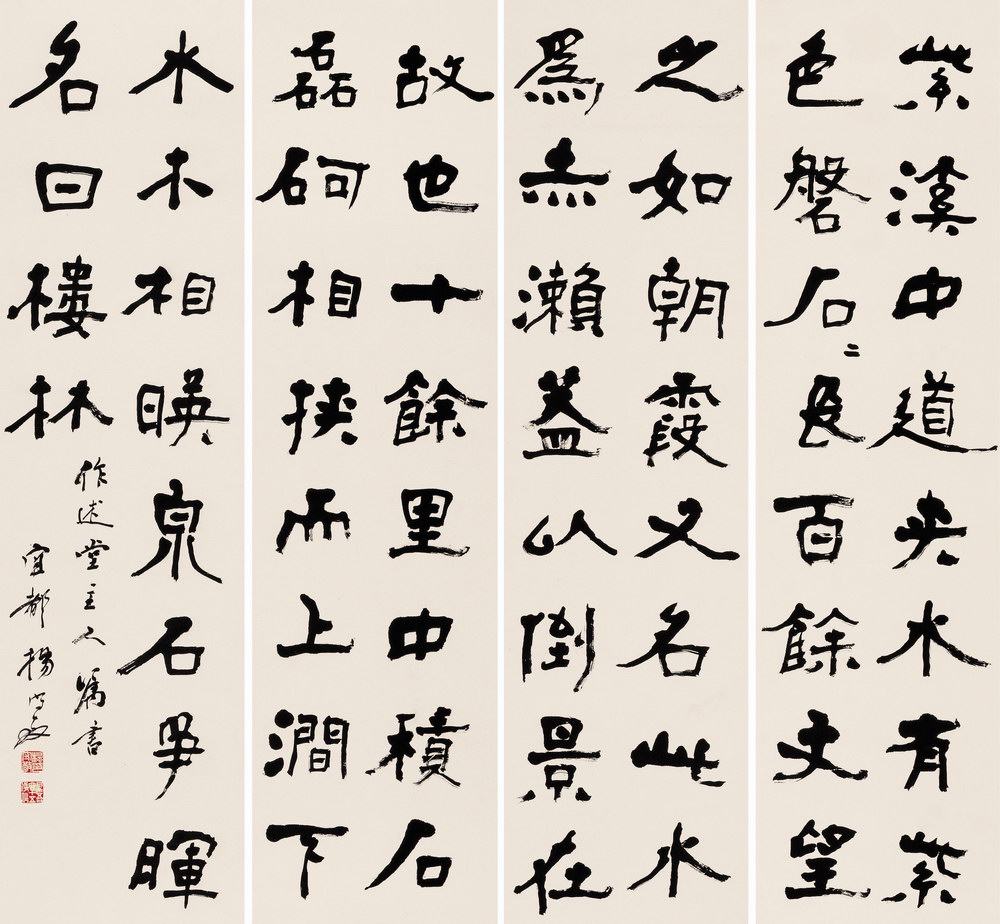 紫溪中道夾水有紫
色磐石二長百餘丈望
之如朝霞又名此水
爲赤瀨蓋以倒景在
故也十餘里中積石
磊砢相挾而上澗下
水木相暎泉石爭暉
名曰樓林
作述堂主人屬書
宜都楊守敬